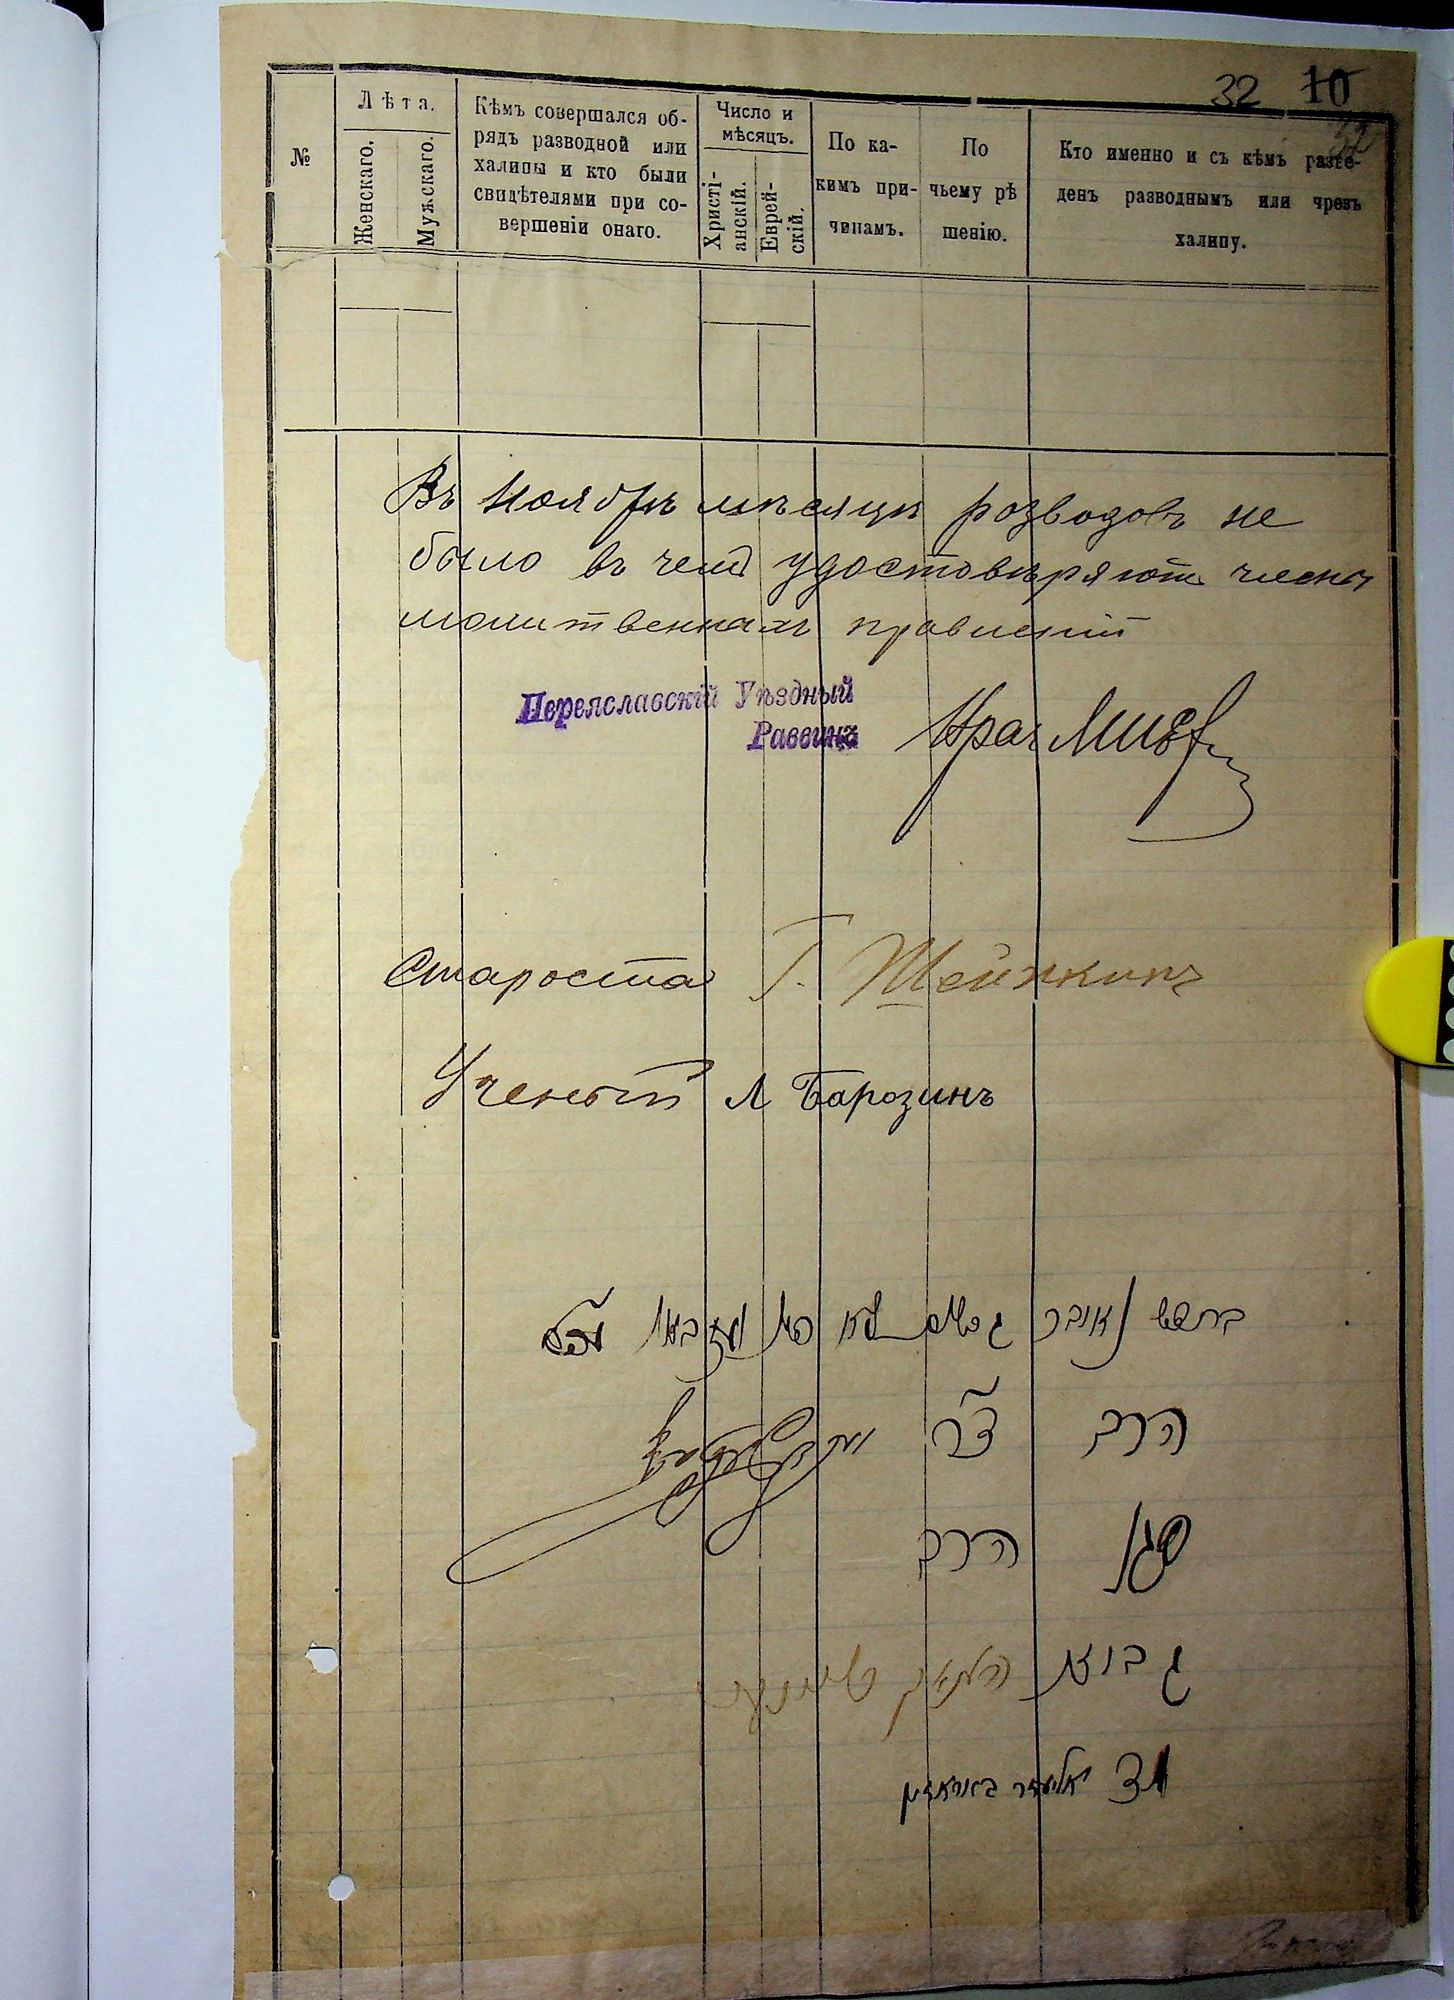 32 10
32
№
Лѣта.
Женскаго.
Мужскаго.
Кѣмъ совершался об-
рядъ разводной или
халицы и кто были
свидѣтелями при со-
вершеніи онаго.
Число и
мѣсяцъ.
Христі-
анскій.
Еврей-
скій.
По ка-
кимъ при-
чинамъ.
По
чьему рѣ
шенію.
Кто именно и съ кѣмъ разве-
денъ разводнымъ или чрезъ
халицу.
Въ Ноябрѣ мѣсяцѣ розводовъ не
было въ чемъ удостовѣряютъ члены
молитвеннахъ правленій
Переяславскій Уѣздный
Раввинъ
Староста Г. Шейнкинъ
Ученый Л Барозинъ
בחדש נאובר
הרב
סגן הרב
גבוא
אליעזר באראזין